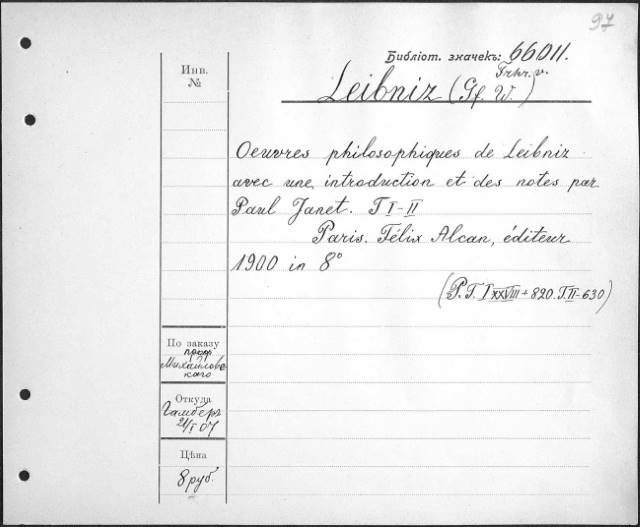 97
Библіот. значекъ: 66011.
Инв.
№
Frhr. v.
Leibniz (Gf. W.)
Oeuvres philosophiques de Leibniz
avec une introduction et des notes par
Paul Janet. T I-II
Paris. Félix Alcan, éditeur
1900 in 8°
(P. T. I XXVIII + 820. T. II - 630)
По заказу
проф
Михайловс
каго
Откуда
Гамберъ
21/I 07
Цѣна
8 руб.